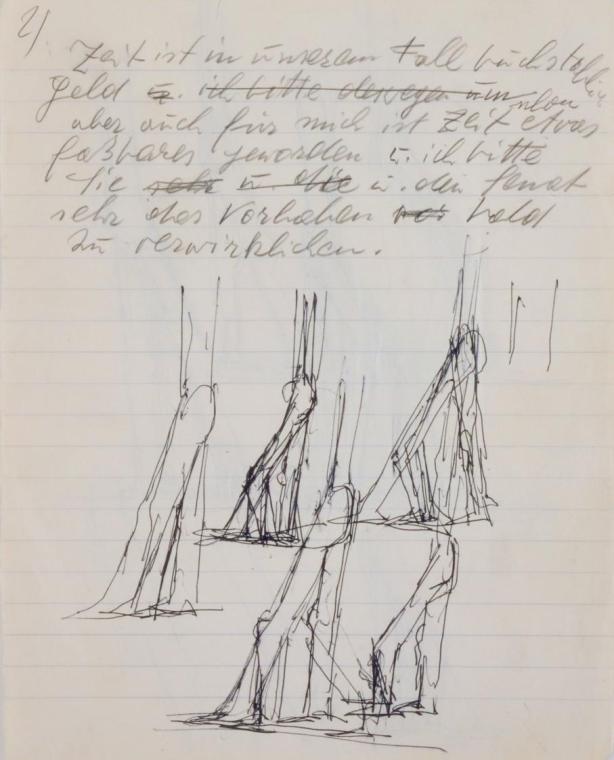 2)
Zeit ist in unserem Fall buchstabl.
Geld u. ich bitte deswegen um
aber auch für mich ist Zeit etwas
faßbares geworden u. ich bitte
Sie sehr u. die u. den Senat
sehr das Vorhaben bald
zu verwirklichen.